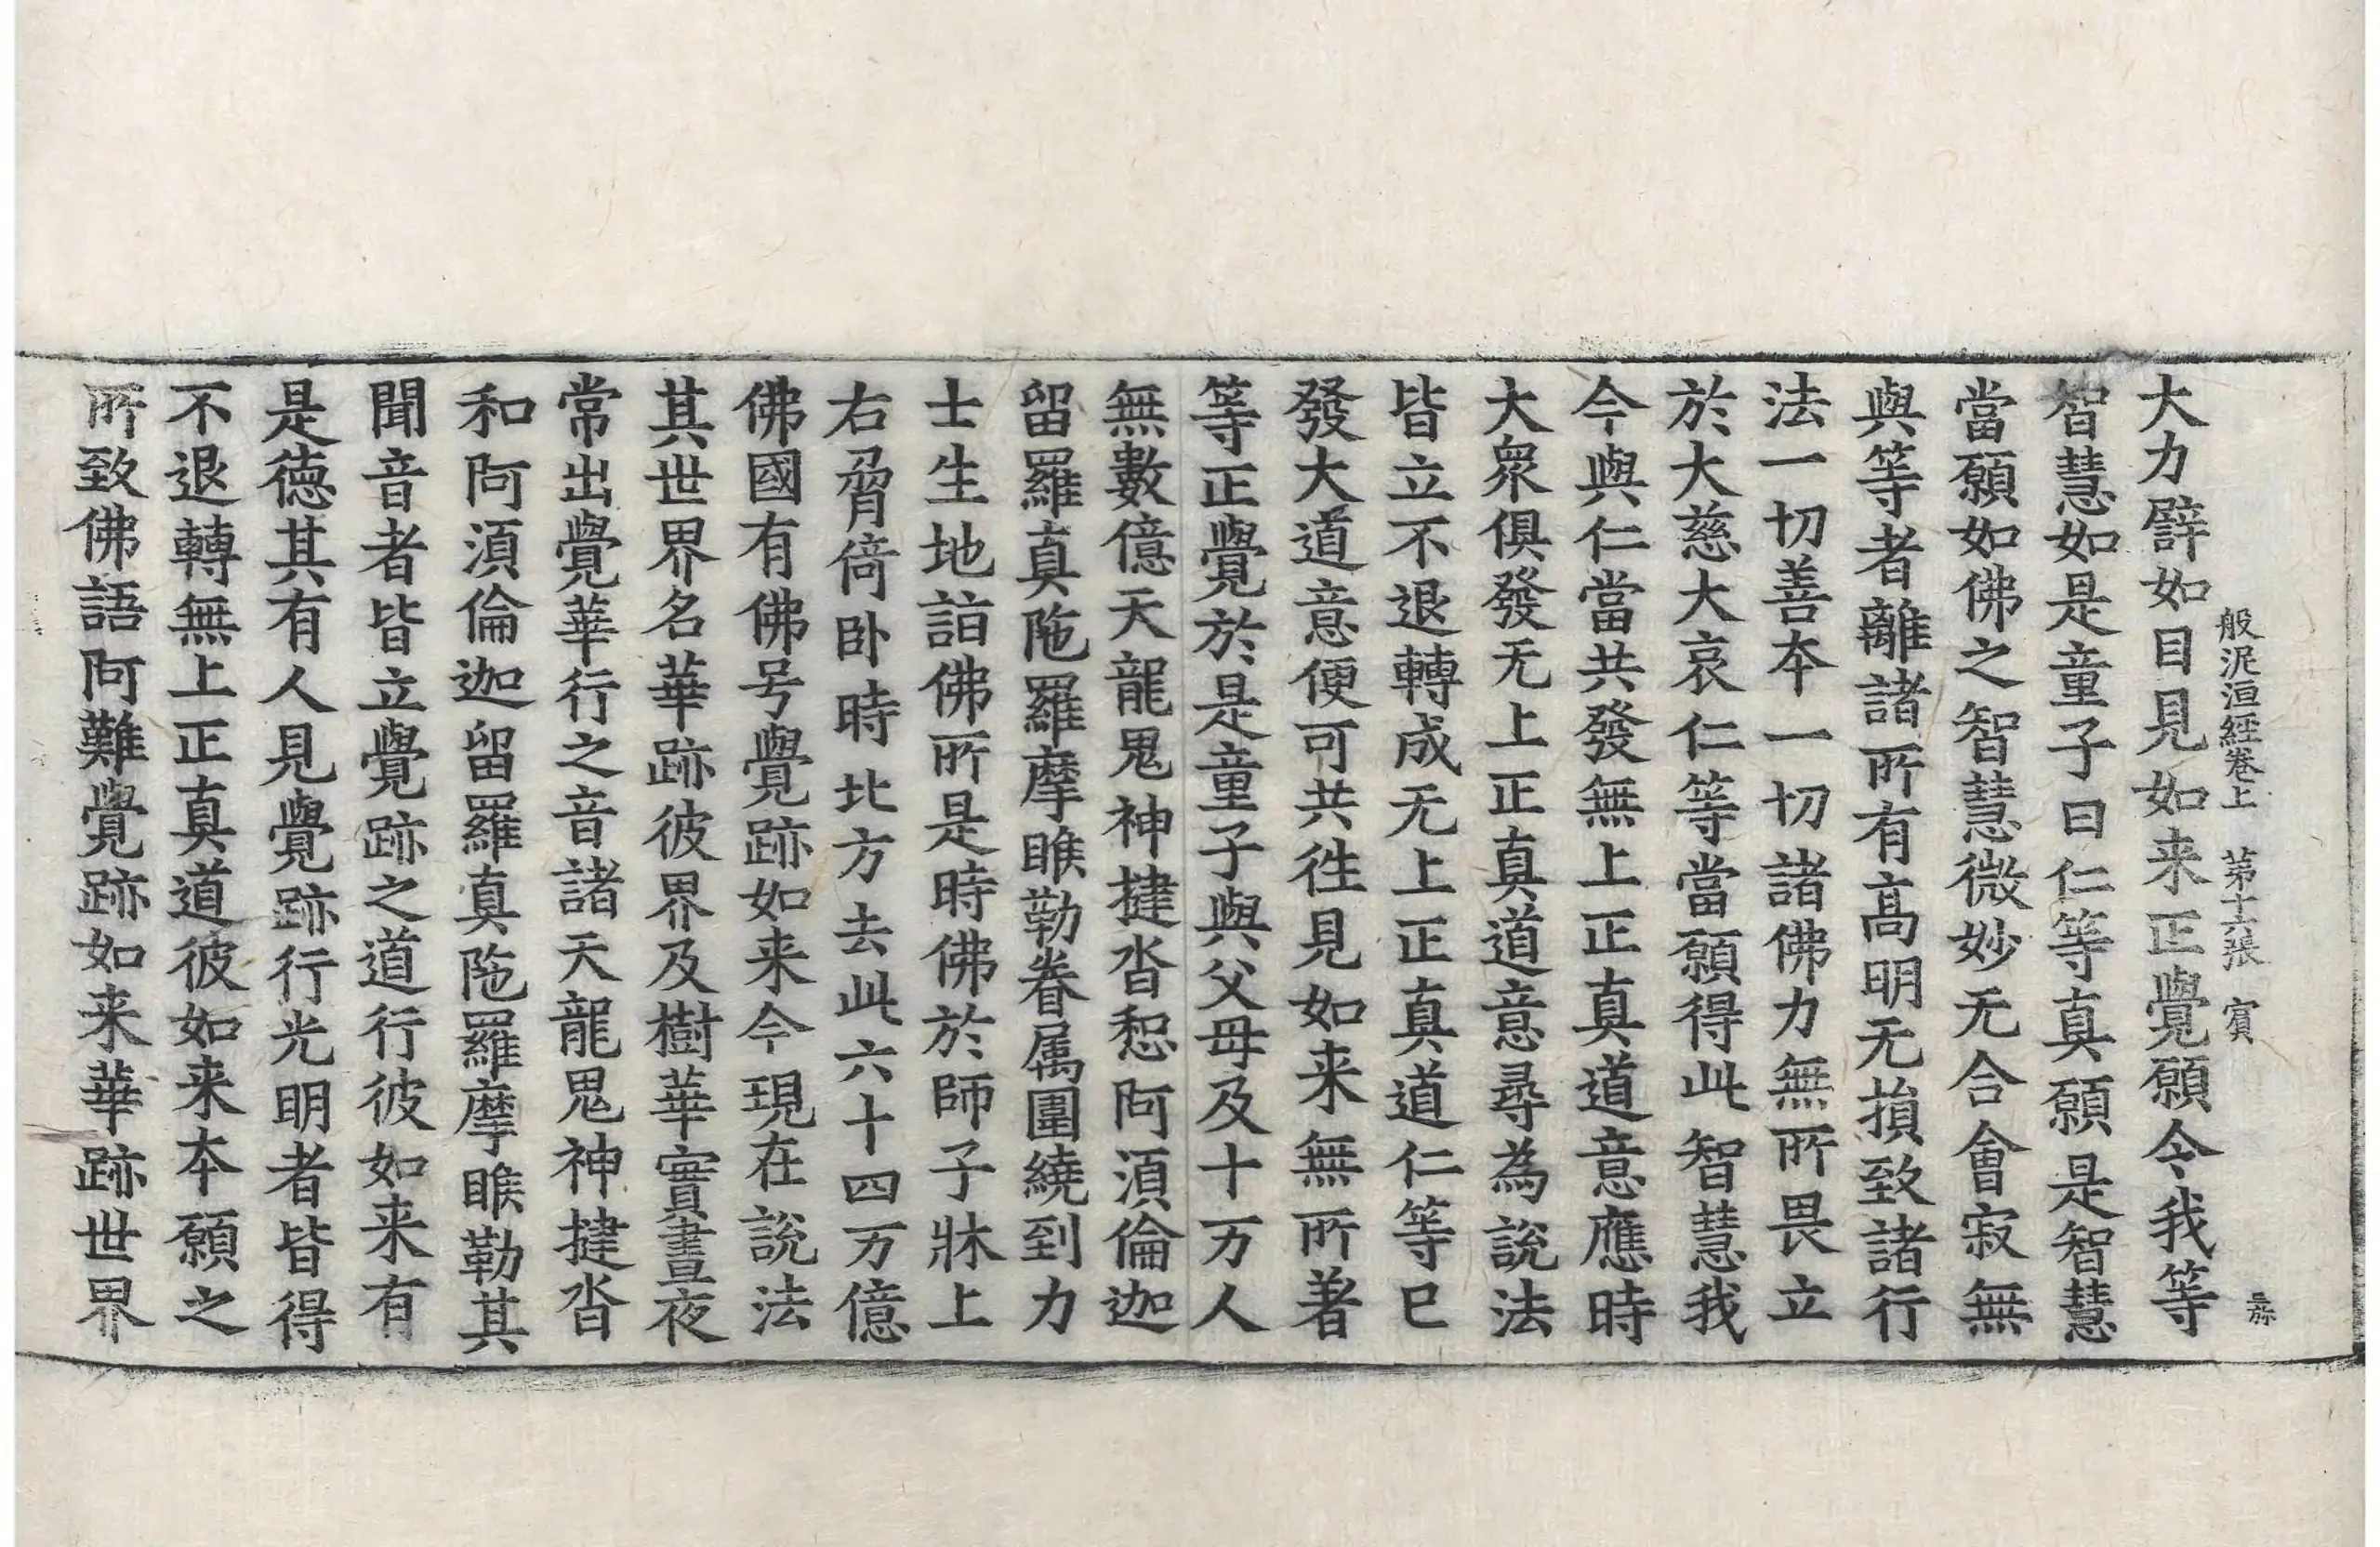 大力辟如目見如来正覺願令我等
般泥洹経卷上 第十六張 賓
智慧如是童子曰仁等真願是智慧
當願如佛之智慧微妙无合會寂無
與等者離諸所有高明无損致諸行
法一切善本一切諸佛力無所畏立
於大慈大哀仁等當願得此智慧我
今與仁當共發無上正真道意應時
大衆俱發无上正真道意尋為說法
皆立不退轉成无上正真道仁等已
發大道意便可共往見如来無所著
等正覺於是童子與父母及十万人
無數億天龍鬼神揵沓惒阿須倫迦
留羅真陁羅摩睺勒眷属圍繞到力
士生地詣佛所是時佛於師子牀上
右脅倚卧時北方去此六十四万億
佛國有佛号覺跡如来今現在說法
其世界名華跡彼界及樹華實晝夜
常出覺華行之音諸天龍鬼神揵沓
和阿須倫迦留羅真陁羅摩睺勒其
聞音者皆立覺跡之道行彼如来有
是德其有人見覺跡行光明者皆得
不退轉無上正真道彼如来本願之
所致佛語阿難覺跡如来華跡世界